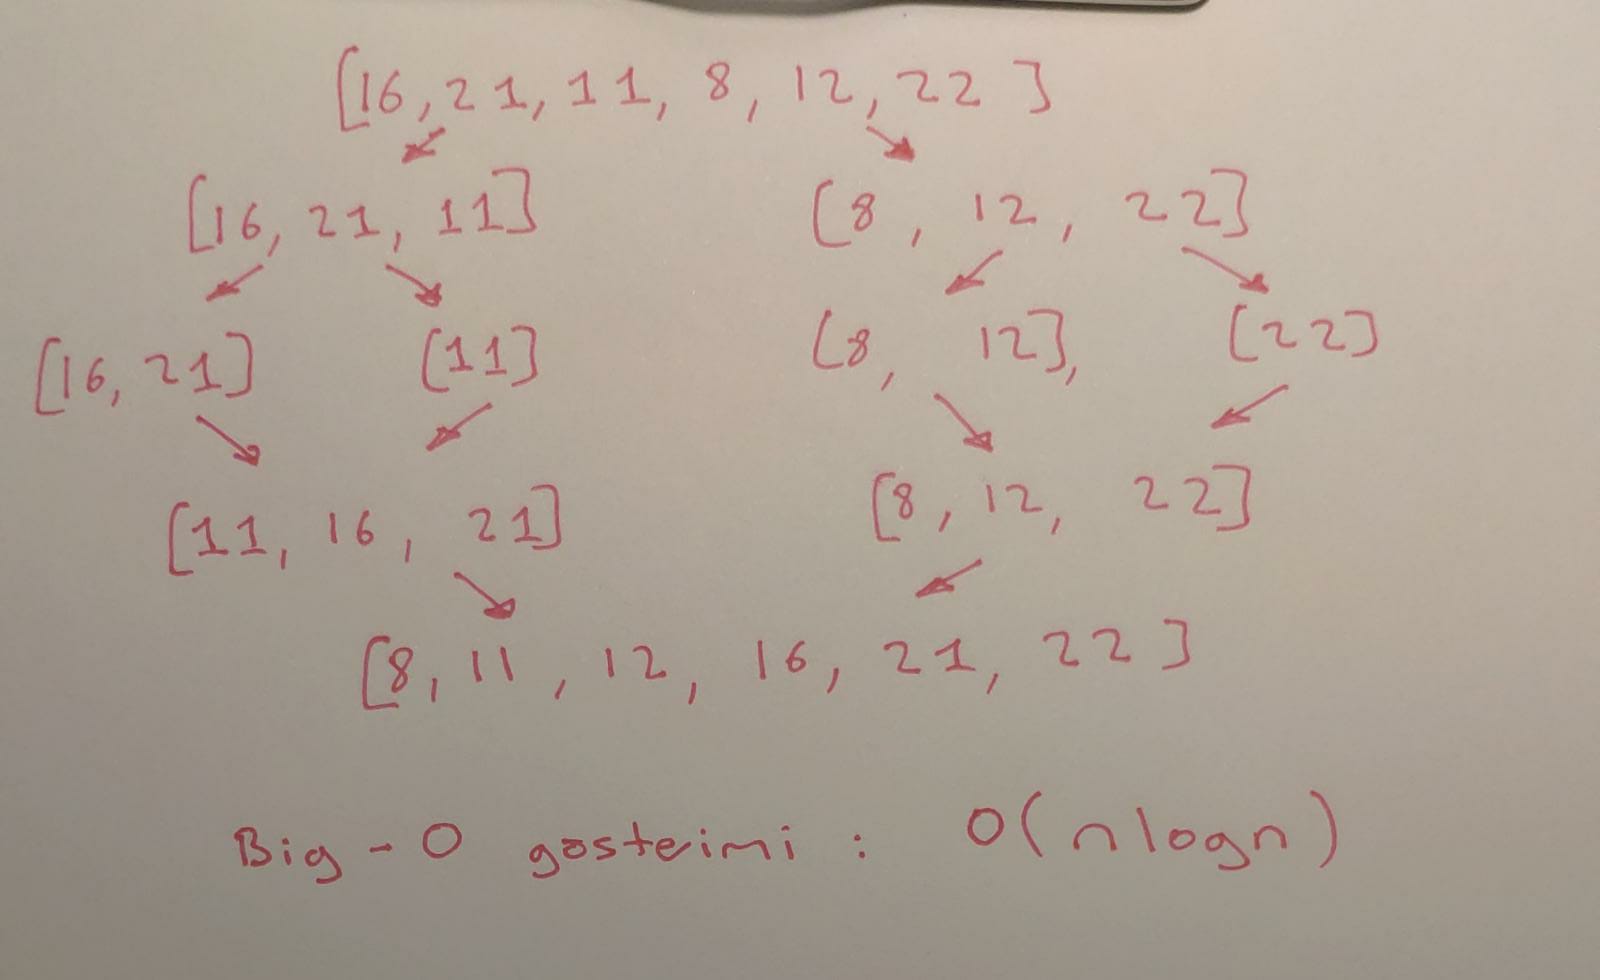 [16, 21, 11, 8, 12, 22]
[16, 21, 11] [8, 12, 22]
[16, 21] [11] [8, 12], [22]
[11, 16, 21] [8, 12, 22]
[8, 11, 12, 16, 21, 22]
Big-O gösteimi : O(nlogn)